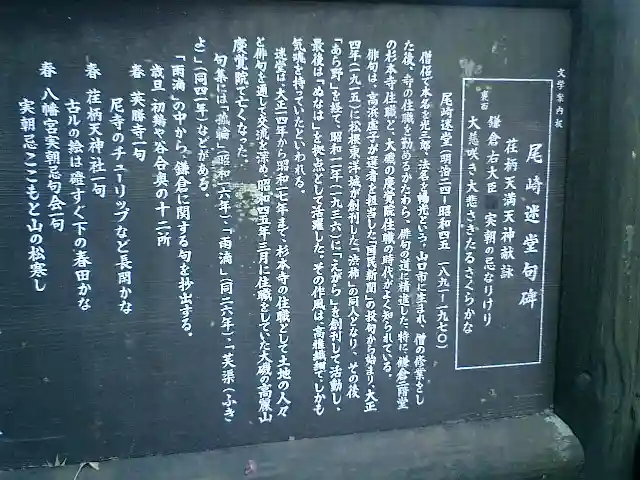 文学案内板
尾崎迷堂句碑
荏柄天満天神献詠
鎌倉右大臣 実朝の忌なりけり
大慈咲き大悲さきたるさくらかな
尾崎迷堂(明治二四〜昭和四五 一八九一〜一九七〇)
僧侶で本名を光三郎、法名を暢光という。山口市に生まれ、僧の修業をし
た後、寺の住職を勤めるかたわら、俳句の道に精進した。特に鎌倉二階堂
の杉本寺住職と、大磯の慶覚院住職の時代がよく知られている。
俳句は、高浜虚子が選者を担当した「国民新聞」の投句から始まり、大正
四年(一九一五)に松根東洋城が創刊した「渋柿」の同人となり、その後
「あら野」を経て、昭和一一年(一九三六)に「えがら」を創刊して活動し、
最後は「ぬなは」を拠点として活躍した。その作風は、高雅縝綿で、しかも
気魂を持していたといわれる。
迷堂は大正一四年から昭和一七年まで、杉本寺の住職として土地の人々
と俳句を通して交流を深め、昭和四五年三月に住職をしていた大磯の高麗山
慶覚院で亡くなった。
句集には「孤輪」(昭和一六年)、「雨滴」(同二六年)、「芙蕖(ふき
よ)」(同四一年)などがある。
「雨滴」の中から、鎌倉に関する句を抄出する。
歳旦 初鶏や谷合奥の十二所
春 英勝寺一句
尼寺のチューリップなど長閑かな
春 荏柄天神社一句
古ルの絵は磴すぐ下の春田かな
春 八幡宮実朝忌句会一句
実朝忌ここもと山の松寒し